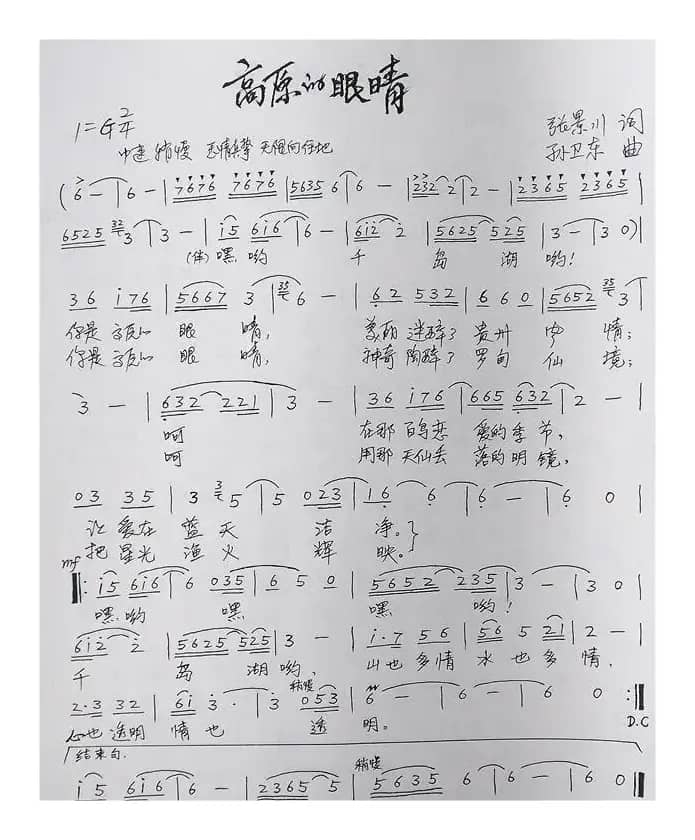 高原的眼睛
1=G 2/4
张景川 词
中速 稍慢
孙卫东 曲
(6 - | 6 - | 7676 7676 | 5635 6 | 6 - | 232 2 | 2 - | 2365 2365 |
6525 3 | 3 - | i5 6i6 | 6 - | 6i2 2 | 5625 525 | 3 - | 3 0) |
(伴) 嘿 哟 千 岛 湖 哟!
36 i76 | 5667 3 | 6 - | 62 532 | 660 | 5652 3 |
你是高原的 眼 睛, 美丽 迷醉了 贵州 风 情;
你是高原的 眼 睛, 神奇 陶醉了 罗甸 仙 境;
3 - | 632 221 | 3 - | 36 i76 | 665 632 | 2 - |
呵 在那 百鸟恋 爱的季 节,
呵 用那 天仙丢 落的明 镜,
03 35 | 3 5 | 5 023 | 16 6 | 6 - | 6 0 |
让 爱在 蓝 天 洁 净。
把 星光 渔 火 辉 映。
mf
|: i5 6i6 | 6 035 | 6 5 0 | 5652 235 | 3 - | 3 0 |
嘿 哟 嘿 嘿 哟!
6i2 2 | 5625 525 | 3 - | i·7 56 | 56 5 21 | 2 - |
千 岛 湖 哟, 山也 多情 水 也 多 情,
稍慢
2·3 32 | 6i 3· | 3 053 | 6 - | 6 - | 6 0 :|
心也 透明 情 也 透 明。 D.C
结束句.
稍慢
i5 6i6 | 6 - | 2365 5 | 5635 6 | 6 - | 6 0 |